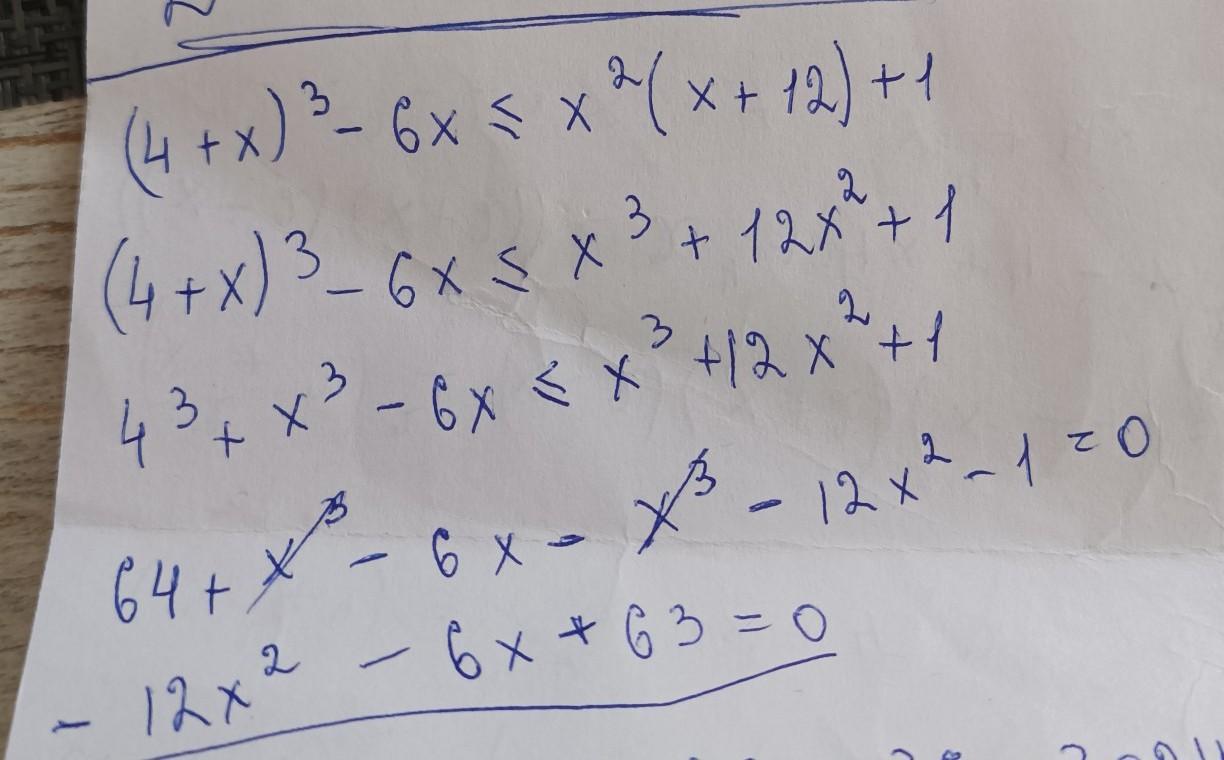 (4+x)³ - 6x ≤ x²(x+12)+1
(4+x)³ - 6x ≤ x³ + 12x² + 1
4³ + x³ - 6x ≤ x³ + 12x² + 1
64 + x³ - 6x - x³ - 12x² - 1 = 0
- 12x² - 6x + 63 = 0